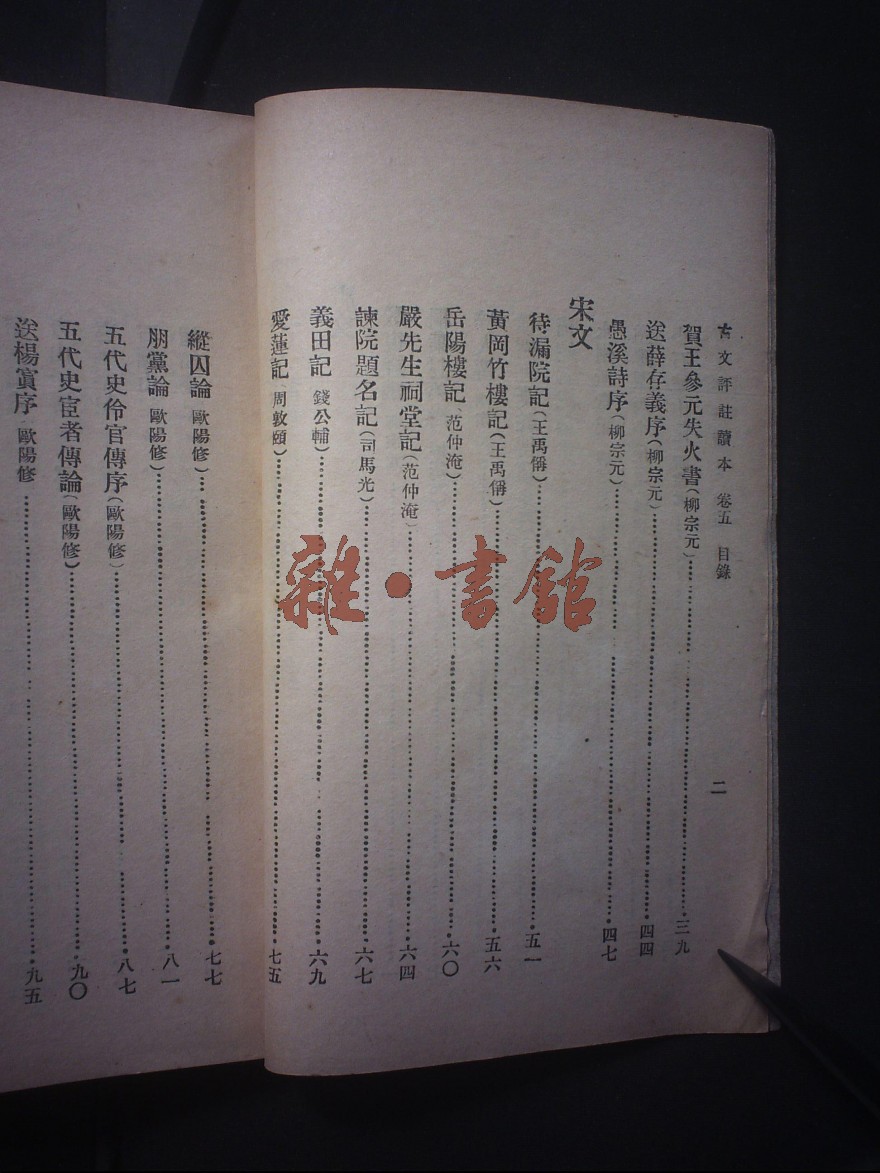 古文評註讀本 卷五 目錄 二
賀王參元失火書(柳宗元)……三九
送薛存義序(柳宗元)……四四
愚溪詩序(柳宗元)……四七
宋文
待漏院記(王禹偁)……五一
黃岡竹樓記(王禹偁)……五六
岳陽樓記(范仲淹)……六〇
嚴先生祠堂記(范仲淹)……六四
諫院題名記(司馬光)……六七
義田記(錢公輔)……六九
愛蓮記(周敦頤)……七五
縱囚論(歐陽修)……七七
朋黨論(歐陽修)……八一
五代史伶官傳序(歐陽修)……八七
五代史宦者傳論(歐陽修)……九〇
送楊寘序(歐陽修……九五
雜·書館